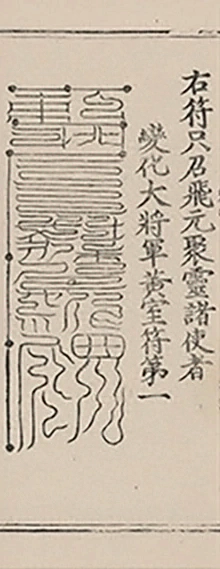 右符只召飛元聚靈諸使者
變化大將軍黃室符第一